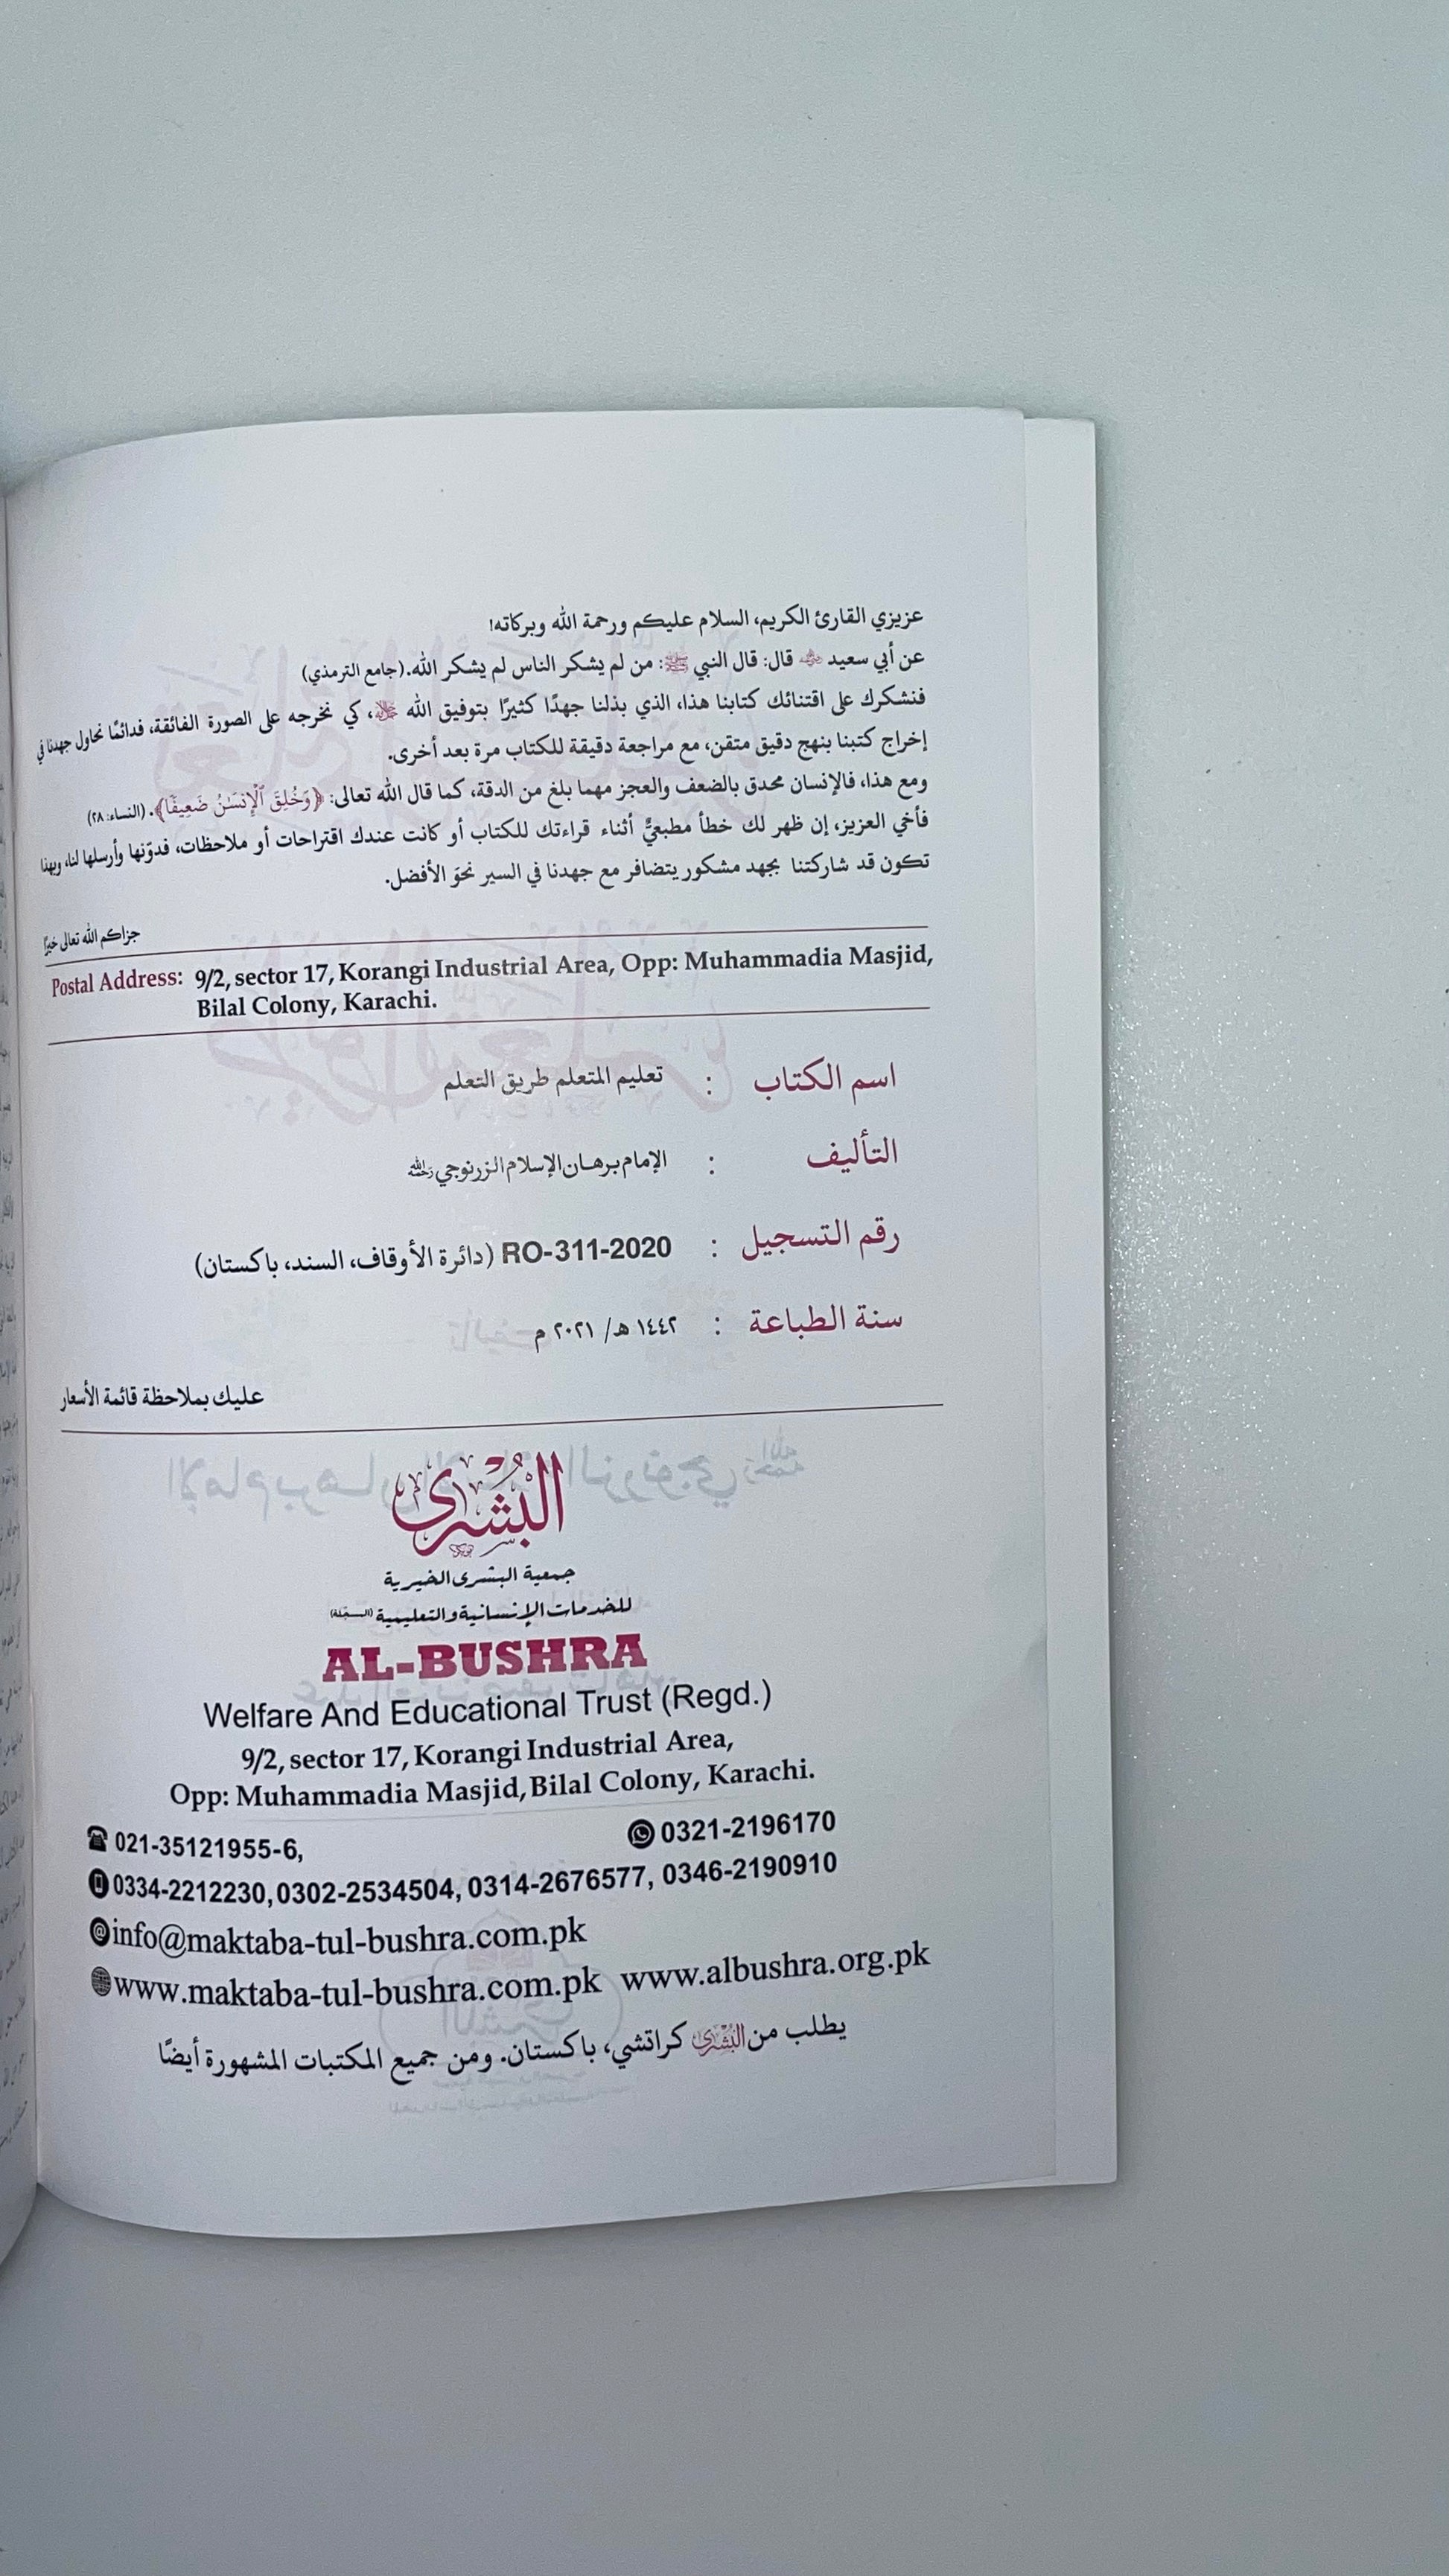 عزيزي القارئ الكريم، السلام عليكم ورحمة الله وبركاته!
عن أبي سعيد رضي الله عنه قال: قال النبي ﷺ: من لم يشكر الناس لم يشكر الله. (جامع الترمذي)
فنشكرك على اقتنائك كتابنا هذا، الذي بذلنا جهدًا كثيرًا بتوفيق الله ﷻ، كي نخرجه على الصورة الفائقة، فدائمًا نحاول جهدنا في
إخراج كتبنا بنهج دقيق متقن، مع مراجعة دقيقة للكتاب مرة بعد أخرى.
ومع هذا، فالإنسان محدق بالضعف والعجز مهما بلغ من الدقة، كما قال الله تعالى: ﴿وَخُلِقَ ٱلْإِنسَـٰنُ ضَعِيفًا﴾. (النساء: ٢٨)
فأخي العزيز، إن ظهر لك خطأ مطبعيٌّ أثناء قراءتك للكتاب أو كانت عندك اقتراحات أو ملاحظات، فدوّنها وأرسلها لنا، وبهذا
تكون قد شاركتنا بجهد مشكور يتضافر مع جهدنا في السير نحوَ الأفضل.
جزاكم الله تعالى خيرًا
Postal Address: 9/2, sector 17, Korangi Industrial Area, Opp: Muhammadia Masjid,
Bilal Colony, Karachi.
اسم الكتاب : تعليم المتعلم طريق التعلم
التأليف : الإمام برهان الإسلام الزرنوجي رحمه الله
رقم التسجيل : RO-311-2020 (دائرة الأوقاف، السند، باكستان)
سنة الطباعة : ١٤٤٢ هـ/ ٢٠٢١ م
عليك بملاحظة قائمة الأسعار
البُشْرى
جمعية البشرى الخيرية
للخدمات الإنسانية والتعليمية (المسجّلة)
AL-BUSHRA
Welfare And Educational Trust (Regd.)
9/2, sector 17, Korangi Industrial Area,
Opp: Muhammadia Masjid, Bilal Colony, Karachi.
021-35121955-6, 0321-2196170
0334-2212230, 0302-2534504, 0314-2676577, 0346-2190910
info@maktaba-tul-bushra.com.pk
www.maktaba-tul-bushra.com.pk www.albushra.org.pk
يطلب من البُشْرى كراتشي، باكستان. ومن جميع المكتبات المشهورة أيضًا